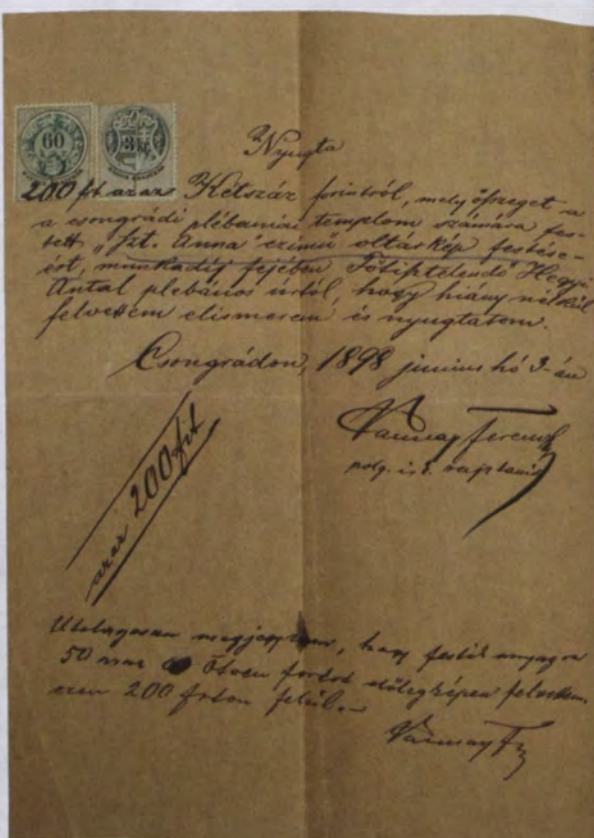 60
3 kr.
Nyugta
200 frt azaz Kétszáz forintról, mely összeget a
a csongrádi plébániai templom számára fes-
tett "Szt. Anna" czimű oltárkép festésé-
ért, munkadíj fejében Főtisztelendő Hegyi
Antal plebános úrtól, hogy hiány nélkül
felvettem elismerem és nyugtatom.
Csongrádon, 1898 junius hó 3-án
Ferencz
polg. isk. rajztanító
azaz 200 frt
Utólagosan megjegyzem, hogy festék anyagra
50 azaz Ötven forintot előlegképen felvettem
ezen 200 frton felül.-